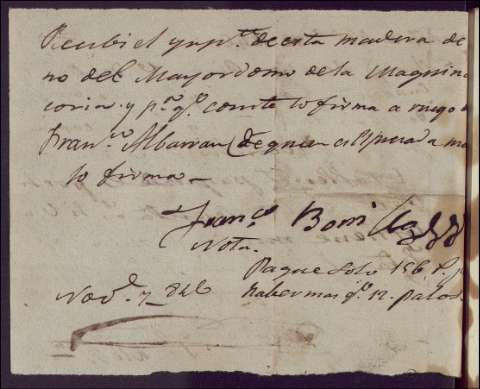 Recibi el ymp.te de esta madera de
no del Mayordomo de la Maquina
coria y p.a q.e conste lo firma a ruego
Fran.co Albarran
lo firma
Fran.co Bonilla
Nota.
Pague solo 156 p.s
haber mas q.e 12. palos
Nov.e 7 de